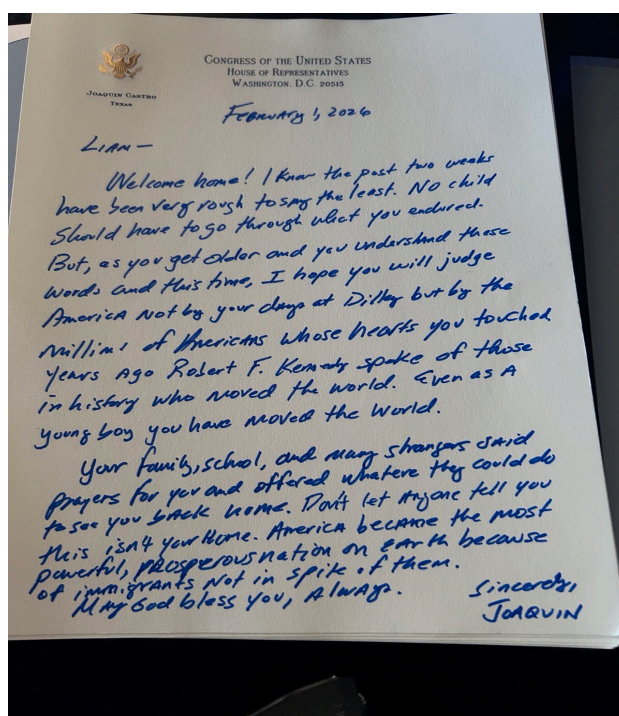 CONGRESS OF THE UNITED STATES
HOUSE OF REPRESENTATIVES
WASHINGTON, D.C. 20515
JOAQUIN CASTRO
TEXAS
FEBRUARY 1, 2026
LIAM —
Welcome home! I know the past two weeks
have been very rough to say the least. No child
should have to go through what you endured.
But, as you get older and you understand these
words and this time, I hope you will judge
America not by your days at Dilley but by the
millions of Americans whose hearts you touched
years ago Robert F. Kennedy spoke of those
in history who moved the world. Even as a
young boy you have moved the world.
Your family, school, and many strangers said
prayers for you and offered whatever they could do
to see you back home. Don't let anyone tell you
this isn't your home. America became the most
powerful, prosperous nation on earth because
of immigrants not in spite of them.
May God bless you, Always.
Sincerely,
JOAQUIN